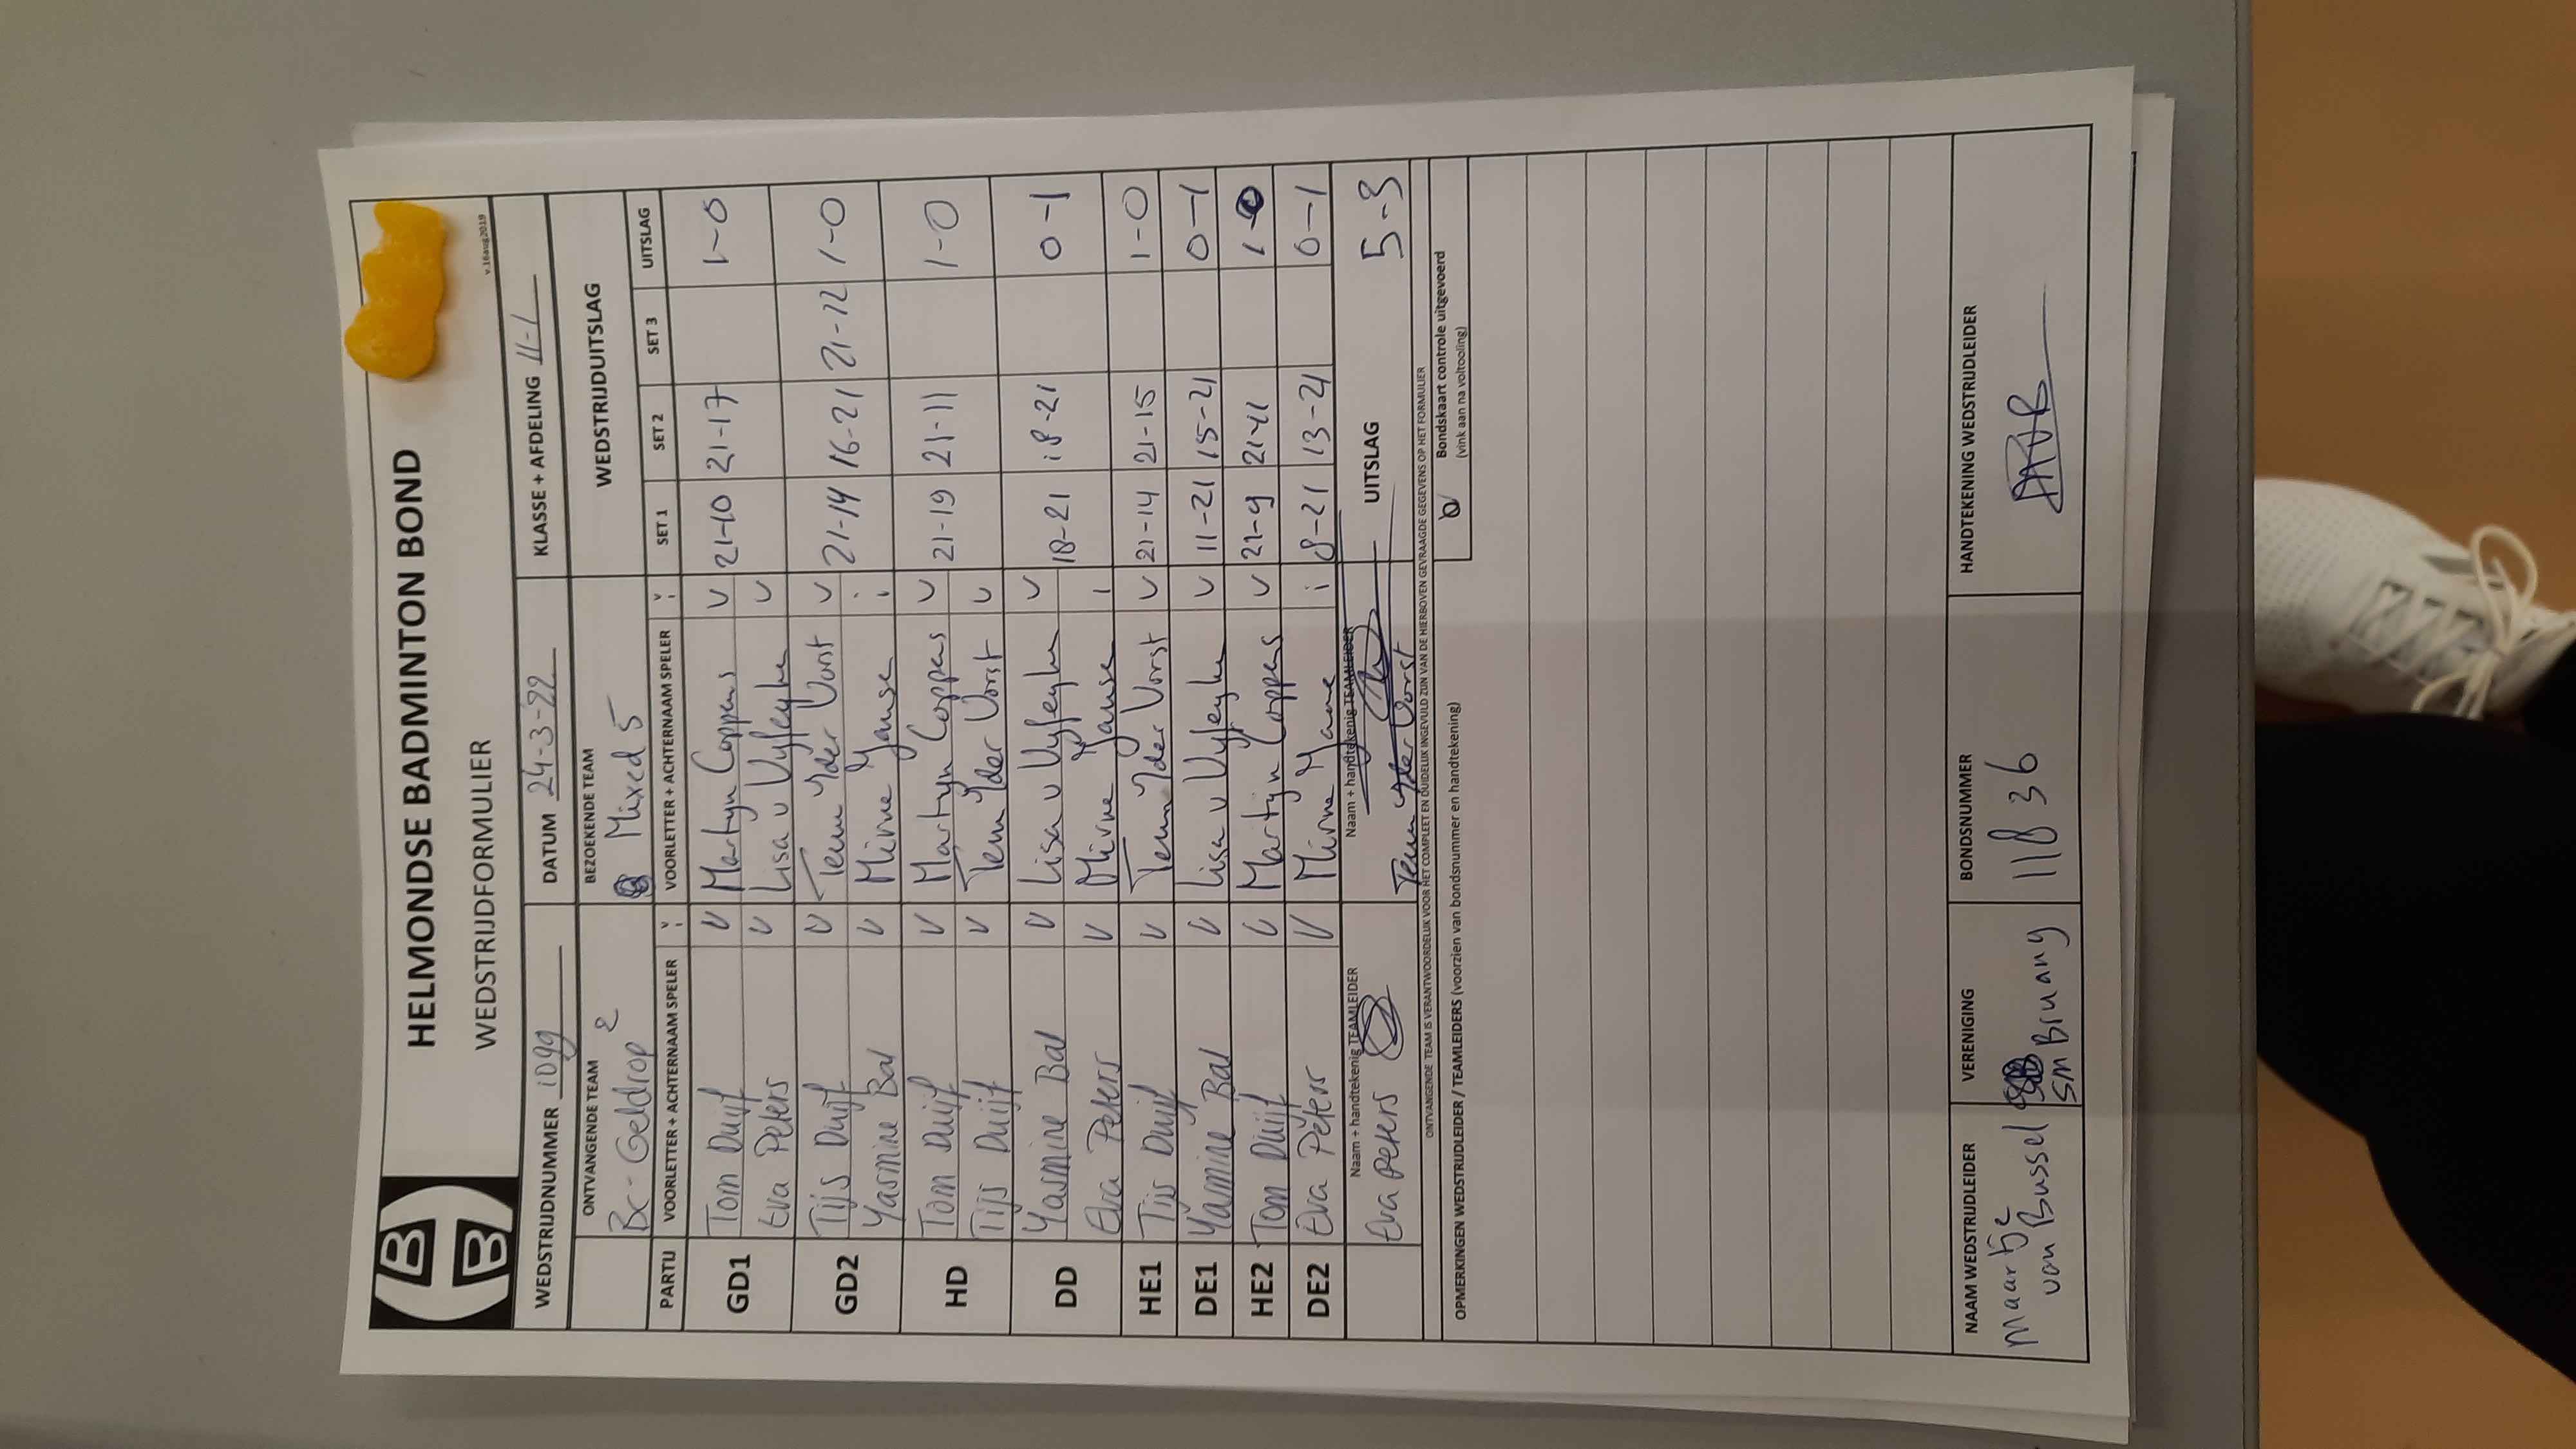 HELMONDSE BADMINTON BOND
WEDSTRIJDFORMULIER
v.16aug2019
WEDSTRIJDNUMMER 1099 DATUM 24-3-22 KLASSE + AFDELING 11-1
ONTVANGENDE TEAM BEZOEKENDE TEAM WEDSTRIJDUITSLAG
BC-Geldrop 2 Mixed 5
PARTIJ VOORLETTER + ACHTERNAAM SPELER V VOORLETTER + ACHTERNAAM SPELER V SET 1 SET 2 SET 3 UITSLAG
GD1 Tom Duijf V Martyn Coppens V 21-10 21-17 1-0
Eva Peters V Lisa v Vyfeyke V
GD2 Tijs Duijf V Teun Yder Vorst V 21-14 16-21 21-22 1-0
Yasmine Bal V Mirne Janse i
HD Tom Duijf V Martyn Coppens V 21-19 21-11 1-0
Tijs Duijf V Teun Yder Vorst V
DD Yasmine Bal V Lisa v Vyfeyke V 18-21 18-21 0-1
Eva Peters V Mirne Janse i
HE1 Tijs Duijf V Teun Yder Vorst V 21-14 21-15 1-0
DE1 Yasmine Bal V Lisa v Vyfeyke V 11-21 15-21 0-1
HE2 Tom Duijf V Martyn Coppens V 21-9 21-11 1-0
DE2 Eva Peters V Mirne Janse i 8-21 13-21 0-1
Naam + handtekenig TEAMLEIDER Naam + handtekenig TEAMLEIDER UITSLAG 5-3
Eva Peters Teun Yder Vorst
ONTVANGENDE TEAM IS VERANTWOORDELIJK VOOR HET COMPLEET EN DUIDELIJK INGEVULD ZIJN VAN DE HIERBOVEN GEVRAAGDE GEGEVENS OP HET FORMULIER
OPMERKINGEN WEDSTRIJDLEIDER / TEAMLEIDERS (voorzien van bondsnummer en handtekening) V Bondskaart controle uitgevoerd
(vink aan na voltooiing)
NAAM WEDSTRIJDLEIDER VERENIGING BONDSNUMMER HANDTEKENING WEDSTRIJDLEIDER
maartje
van Bussel SM Bruang 11836